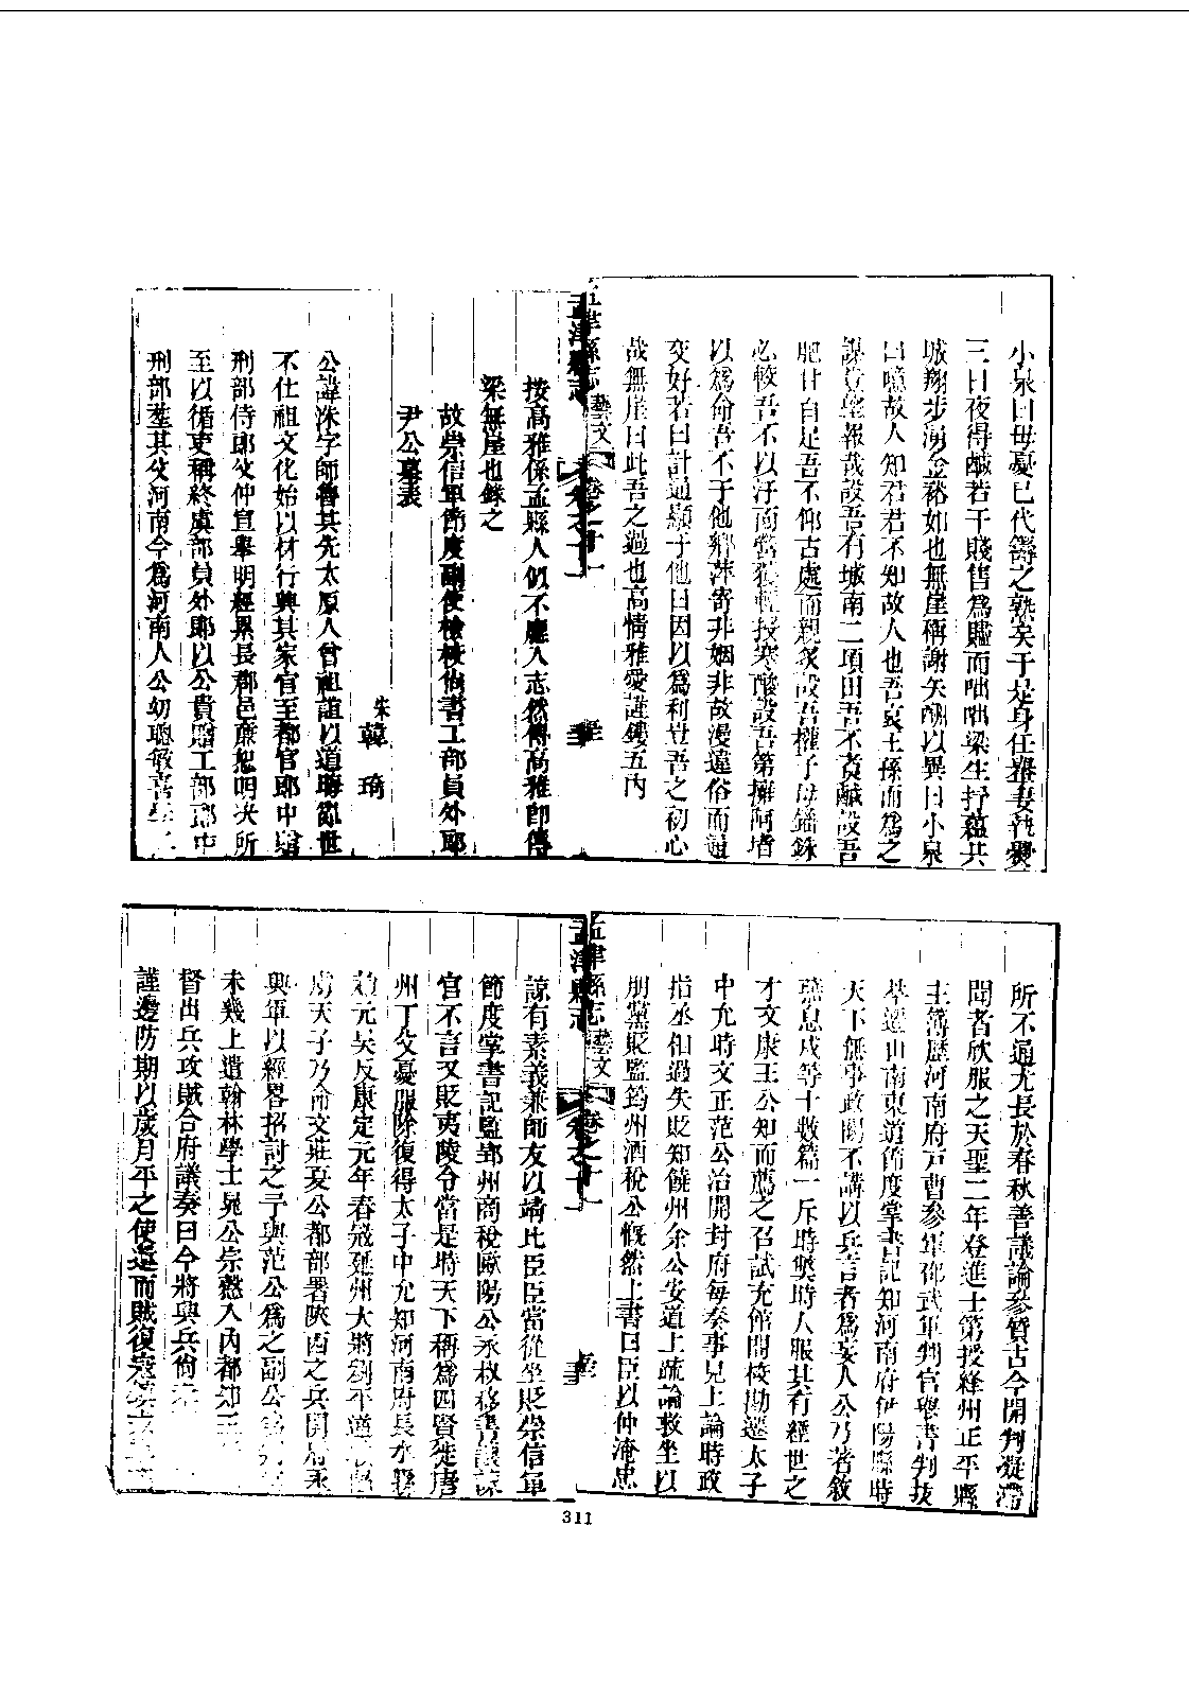 小泉曰毋憂已代籌之熟矣于是身任搬妻執爨
三日夜得鹹若干賤售為贐而咄咄梁生抒蘊共
城翔步湧金裕如也無崖稱謝矢酬以異日小泉
曰噫故人知君君不知故人也吾哀王孫而為之
謀豈望報哉設吾有城南二項田吾不煑鹹設吾
肥甘自足吾不仰古處而親炙設吾權子母錙銖
必較吾不以汙而營獲輕投寒酸設吾第擁阿堵
以為命吾不于他鄉萍寄非姻非故漫違俗而通
交好若曰計通顯于他日因以為利豈吾之初心
哉無崖曰此吾之過也高情雅愛謹鏤五內
孟津縣志 藝文 卷之十一
按高雅係孟縣人似不應入志然傳高雅即傳
梁無崖也錄之
故崇信軍節度副使檢校尚書工部員外郎
尹公墓表
宋韓琦
公諱洙字師魯其先太原人曾祖誼以道晦亂世
不仕祖文化始以材行興其家官至都官郎中贈
刑部侍郎父仲宣舉明經累長郡邑廉恕明決所
至以循吏稱終虞部員外郎以公貴贈工部郎中
刑部塟其父河南今為河南人公幼聰敏喜學
所不通尤長於春秋善議論參質古今開判凝滯
聞者欣服之天聖二年登進士第授絳州正平縣
主簿歷河南府戶曹參軍邵武軍判官舉書判拔
萃遷山南東道節度掌書記知河南府伊陽縣時
天下無事政闕不講以兵言者為妄人公乃著敘
燕息戍等十數篇一斥時獘時人服其有經世之
才文康王公知而薦之召試充館閣校勘遷太子
中允時文正范公治開封府每奏事見上論時政
指丞相過失貶知饒州余公安道上疏論救坐以
朋黨貶監筠州酒稅公慨然上書曰臣以仲淹忠
孟津縣志 藝文 卷之十一
諒有素義兼師友以靖比臣臣當從坐貶崇信軍
節度掌書記監郢州商稅歐陽公永叔移書讓諫
官不言又貶夷陵令當是時天下稱為四賢徙唐
州丁父憂服除復得太子中允知河南府長水縣
趙元昊反康定元年春寇延州大將劉平
天子乃命文莊夏公都部署陝西之兵開府永
興軍以經畧招討之予與范公為之副公
未幾上遣翰林學士晁公宗愨入內都知王
督出兵攻賊合府議奏曰今將與兵尚
謹邊防期以歲月平之使還而賊復寇鎮
311